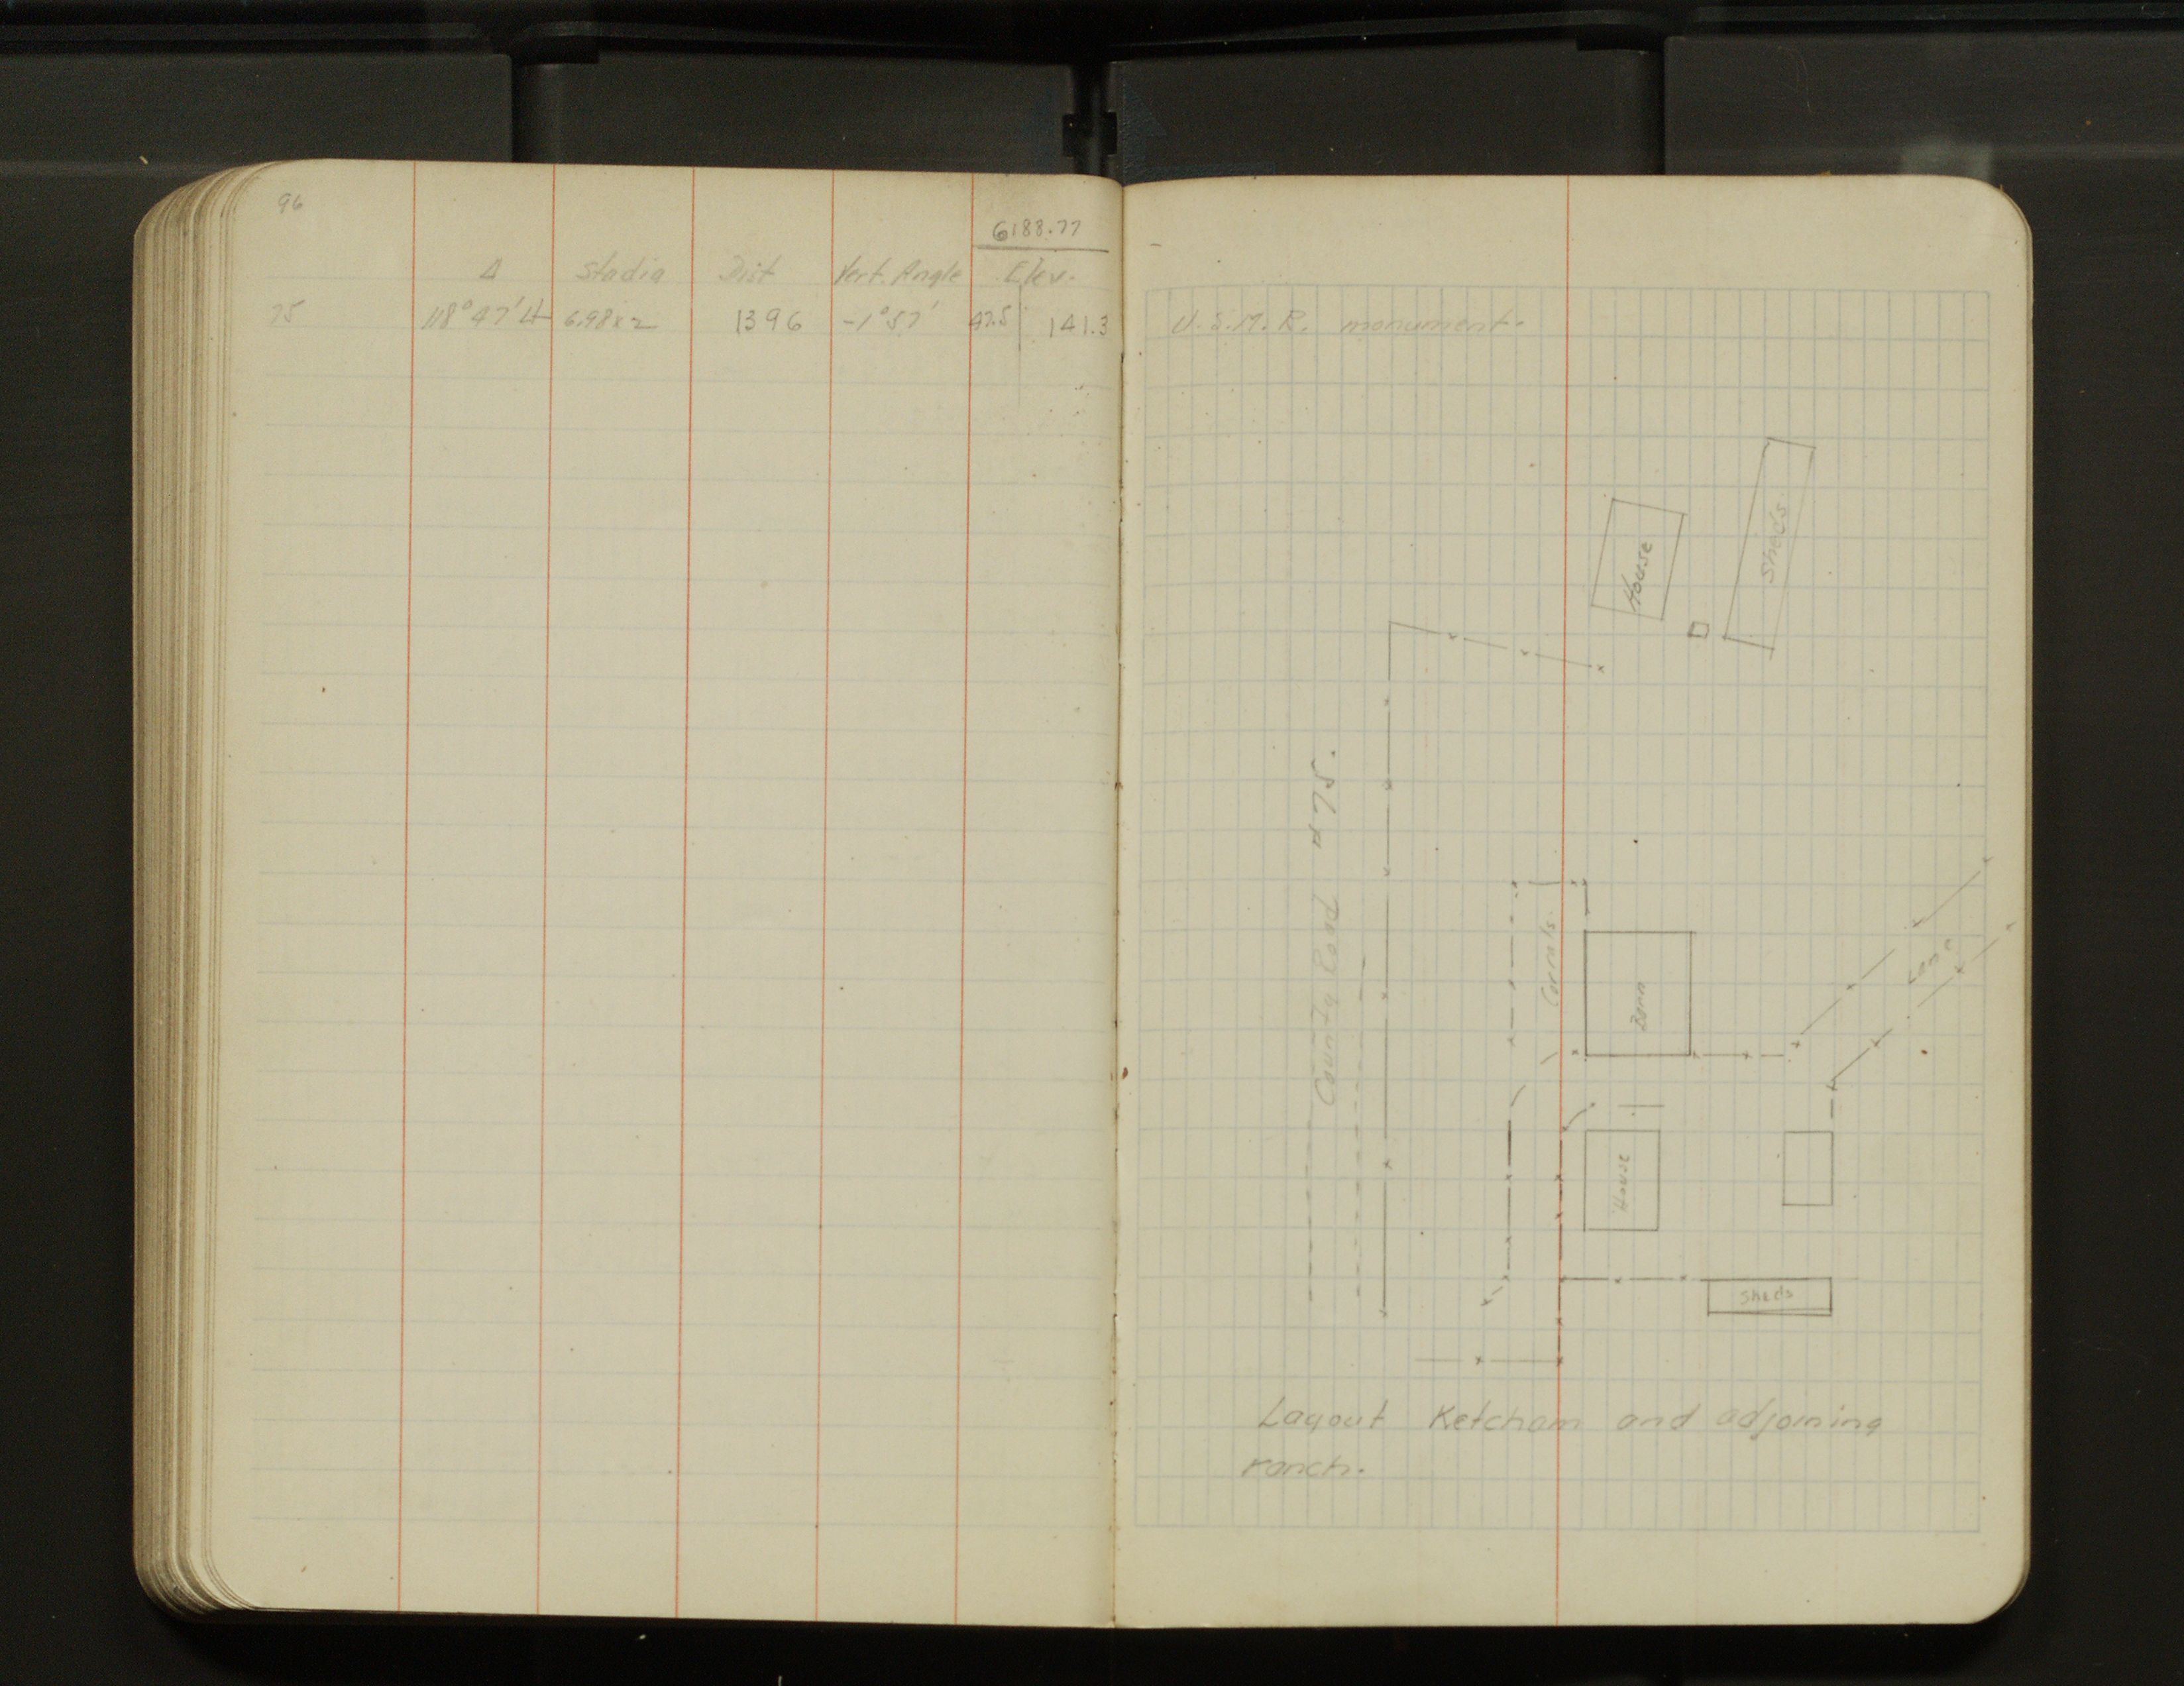 96
6188.77
Δ Stadia Dist Vert. Angle Elev.
75 118°47'4 6.98x2 1396 -1°57' 47.5 141.3
U.S.M.R. monument.
House
Sheds
County Road #75.
Corrals.
Barn
Lane
House
Sheds
Layout Ketcham and adjoining
ranch.